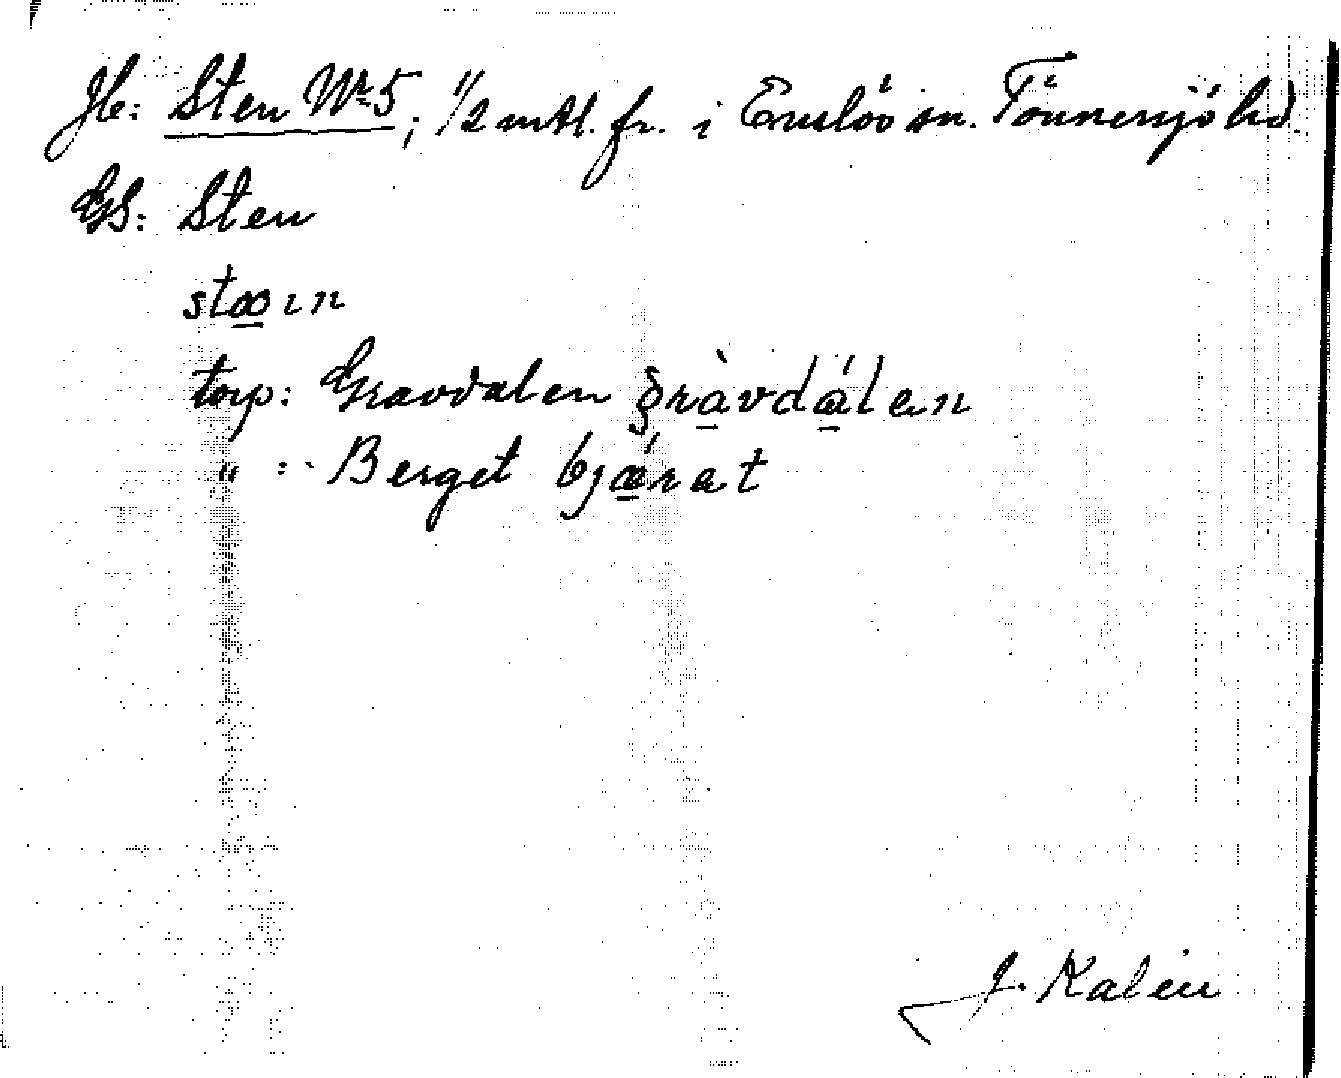 Jb: Sten Nr 5; 1/2 mtl. fr. i Enslöv sn. Tönnersjö hd.
GS: Sten
stæın
torp: Gravdalen gràvdálen
" :- Berget bjærat
J. Kalén